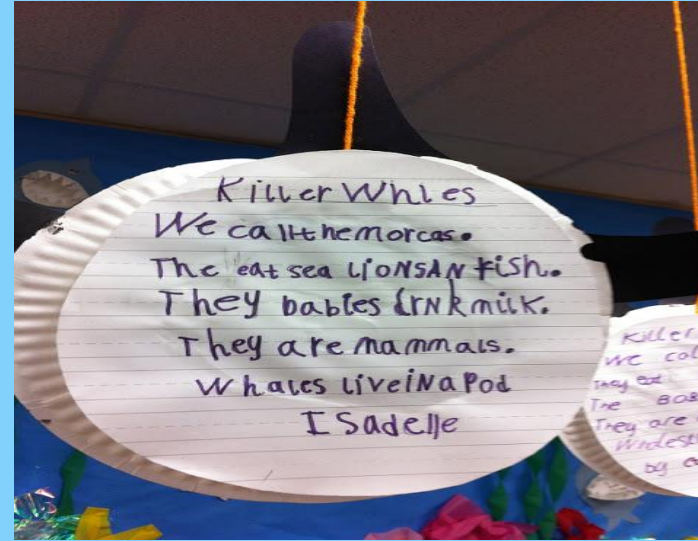 Killer Whles
We callthemorcas.
The eat sea LioNSAN fish.
They babies drnkmilk.
They are mammals.
Whales liveiNaPod
ISadelle
Killer
we cal
They eat
The Bab
They are
by